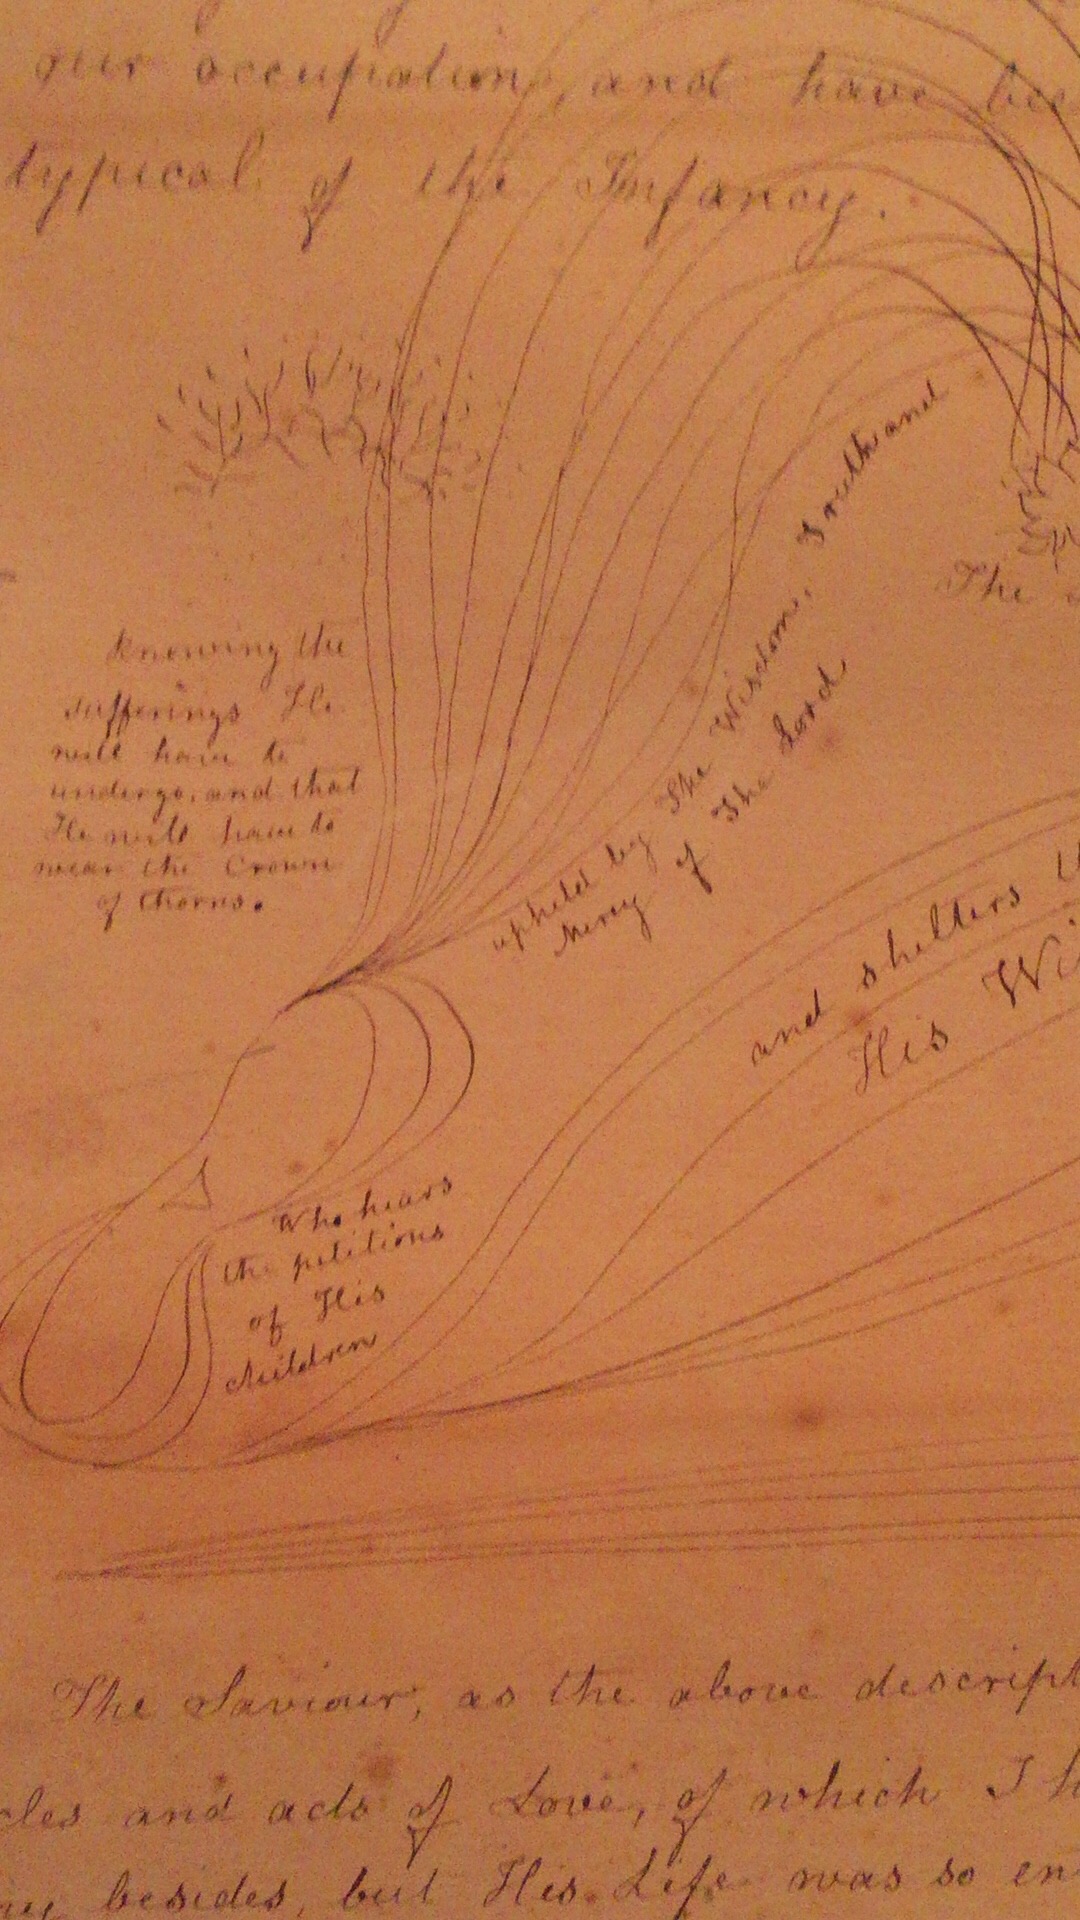 our occupation, and have bee
typical of the Infancy.
The
Knowing the
sufferings He
will have to
undergo, and that
He will have to
wear the Crown
of thorns.
upheld by The Wisdom, Truth and
Mercy of The Lord,
and shelters
His Wi
Who hears
the petitions
of His
children
The Saviour, as the above descript
cles and acts of Love, of which I h
ny besides, but His Life was so en